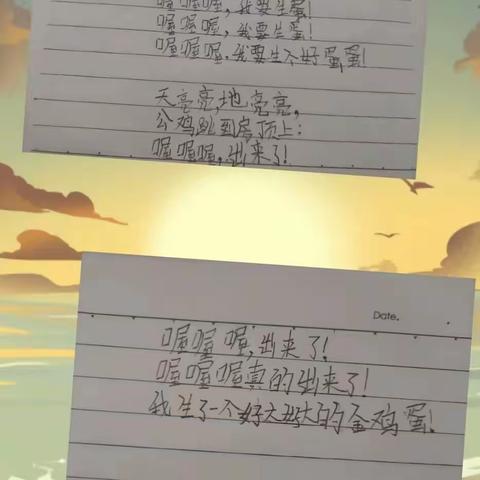 喔喔喔，我要生蛋！
喔喔喔，我要生蛋！
喔喔喔，我要生个好蛋蛋！
天亮亮，地亮亮，
公鸡跳到房顶上：
喔喔喔，出来了！
Date.
喔喔喔，出来了！
喔喔喔真的出来了！
我生了一个好大好大的金鸡蛋！